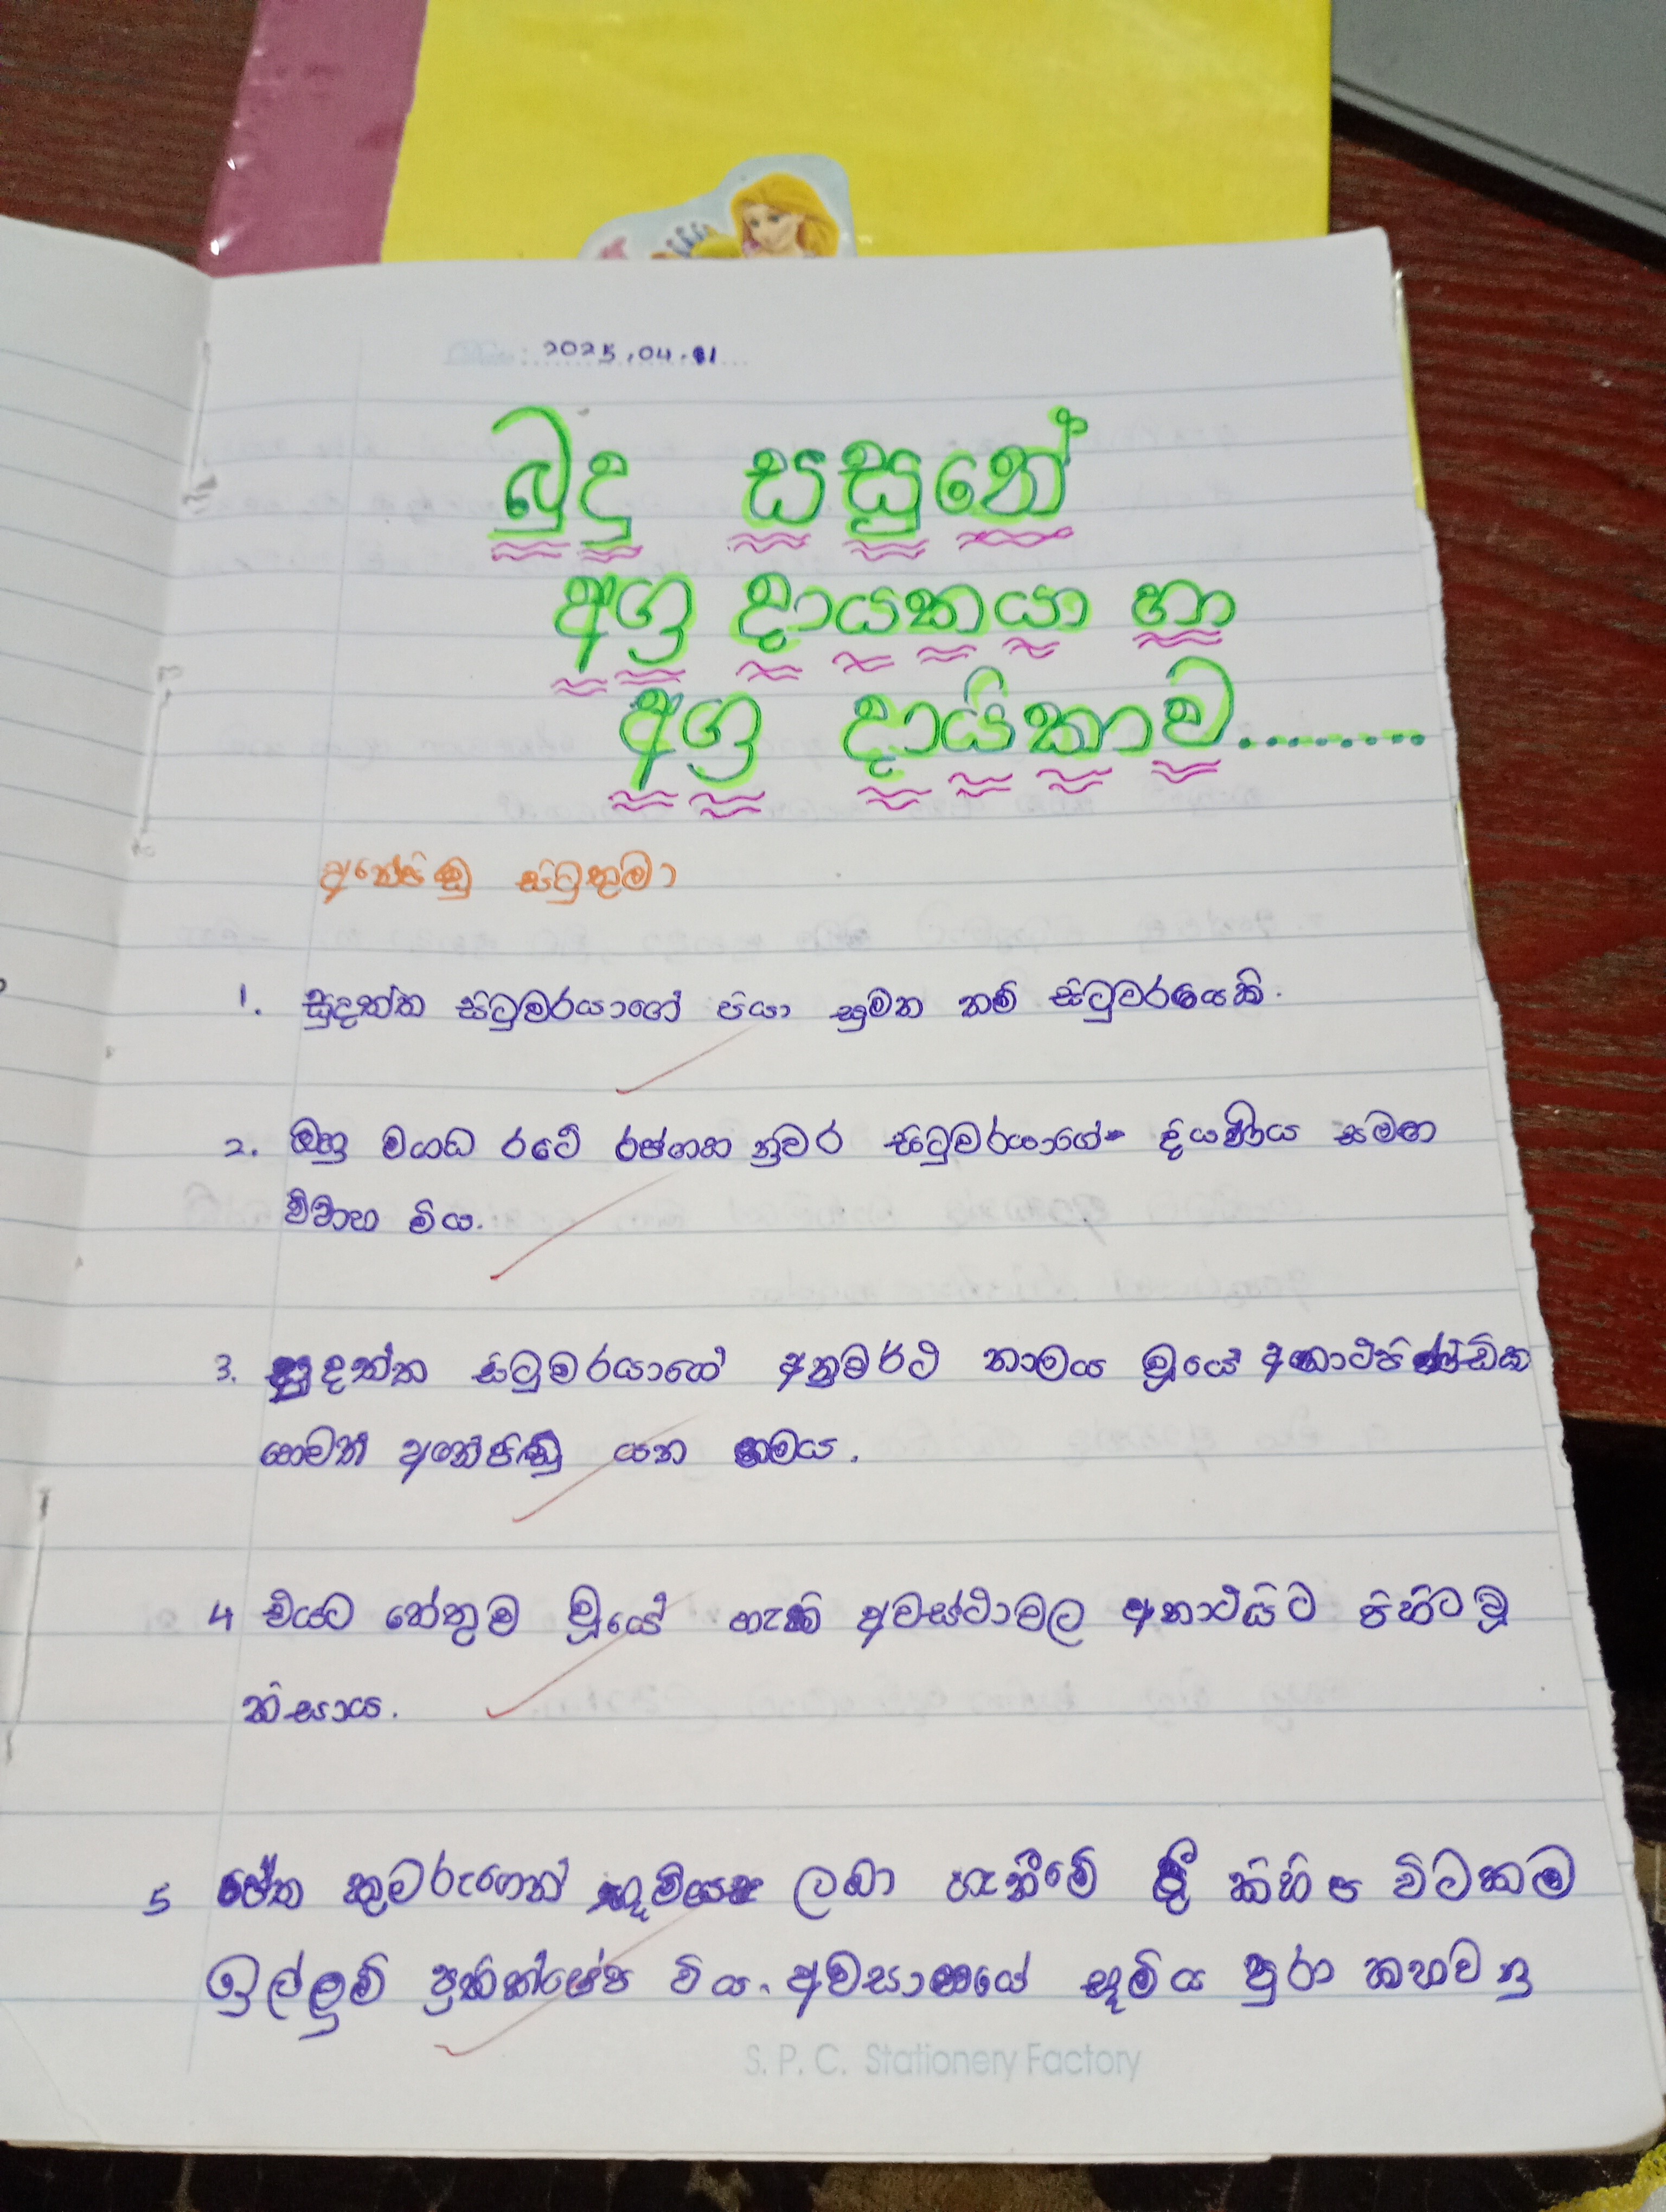 දිනය: 2025.04.01
බුදු සසුනේ
අග්‍ර දායකයා හා
අග්‍ර දායිකාව........
අනේපිඬු සිටුතුමා
1. සුදත්ත සිටුවරයාගේ පියා සුමන නම් සිටුවරයෙකි.
2. ඔහු මගධ රටේ රජගහ නුවර සිටුවරයාගේ දියණිය සමඟ
විවාහ විය.
3. සුදත්ත සිටුවරයාගේ අනුවර්ථ නාමය වූයේ අනාථපිණ්ඩික
හෙවත් අනේපිඬු යන නමය.
4 එයට හේතුව වූයේ හැම අවස්ථාවල අනාථයිට පිහිට වූ
නිසාය.
5 ජේත කුමරුගෙන් භූමිය ලබා ගැනීමේ දී කිහිප විටකම
ඉල්ලුම් ප්‍රතික්ශේප විය. අවසානයේ භූමිය පුරා කහවනු
S. P. C. Stationery Factory